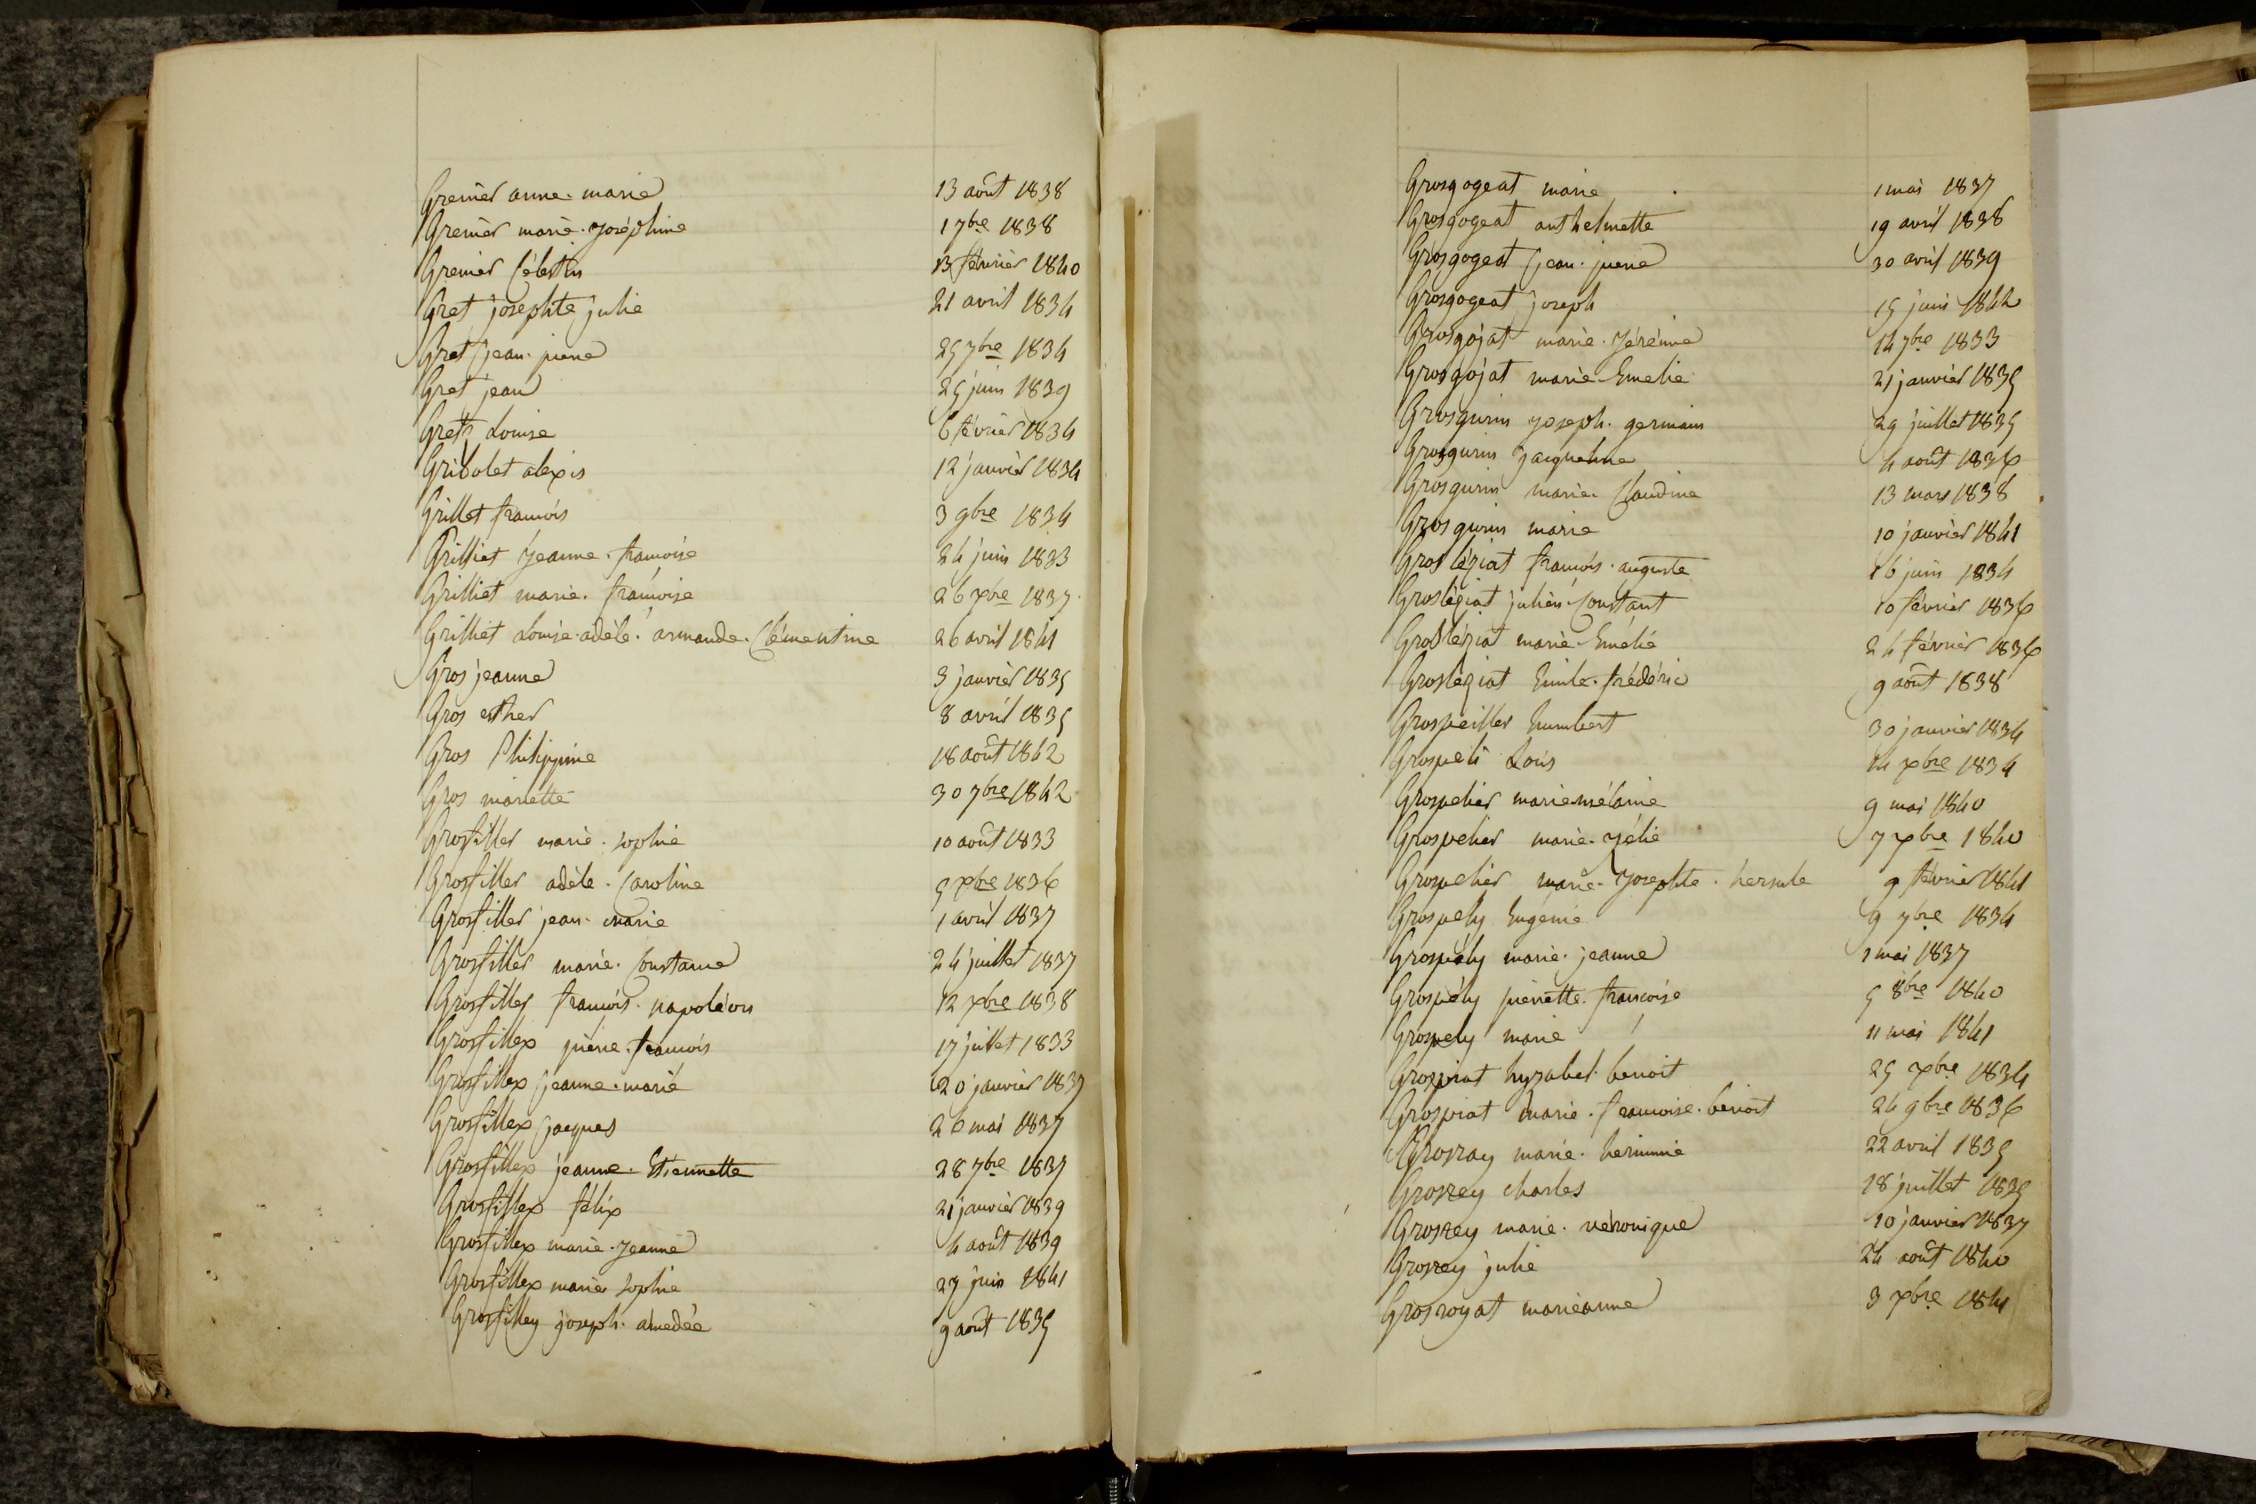 Grenier anne-marie 13 août 1838
Grenier marie-Joséphine 1 7bre 1838
Grenier Célestin 13 février 1840
Gret josephte julie 21 avril 1834
Gret jean-pierre 25 7bre 1834
Gret jean 25 juin 1839
Grets Louise 6 février 1834
Gribolet alexis 12 janvier 1834
Grillet françois 3 9bre 1834
Grilliet Jeanne-françoise 24 juin 1833
Grilliet marie-françoise 26 xbre 1837
Grilliet Louise-adèle-armande-Clémentine 26 avril 1841
Gros jeanne 3 janvier 1835
Gros esther 8 avril 1835
Gros Philippine 18 août 1842
Gros mariette 30 7bre 1842
Grosfiller marie-sophie 10 août 1833
Grosfiller adèle-Caroline 5 xbre 1836
Grosfiller jean-marie 1 avril 1837
Grosfiller marie-Constance 24 juillet 1837
Grosfilley françois-napoléon 12 xbre 1838
Grosfillex pierre-françois 17 juillet 1833
Grosfillex jeanne-marie 20 janvier 1837
Grosfillex jacques 26 mai 1837
Grosfillex jeanne-Etiennette 28 7bre 1837
Grosfillex félix 21 janvier 1839
Grosfillex marie-Jeanne 4 août 1839
Grosfillex marie sophie 27 juin 1841
Grosfilley joseph-amedée 9 août 1835
Grosgogeat marie 1 mai 1837
Grosgogeat anthelmette 19 avril 1838
Grosgogeat jean-pierre 30 avril 1839
Grosgogeat joseph 15 juin 1842
Grosgojat marie-Jérémie 14 7bre 1833
Grosgojat marie-Emelie 21 janvier 1835
Grosgurin Joseph-germain 29 juillet 1835
Grosgurin Jacqueline 4 août 1836
Grosgurin marie-Claudine 13 mars 1838
Grosgurin marie 10 janvier 1841
Gros léziat françois-auguste 16 juin 1834
Grosléziat julien-Constant 10 février 1836
Grosléziat marie-Emélie 24 février 1836
Grosléziat Emile-frédéric 9 août 1838
Grospeiller humbert 30 janvier 1834
Grospeli Louis 14 xbre 1834
Grospelier marie-mélanie 9 mai 1840
Grospelier marie-Zélie 7 xbre 1840
Grospelier marie-Josephte-hersule 9 février 1841
Grospely Eugénie 9 7bre 1834
Grospély marie-jeanne 1 mai 1837
Grospély pierrette-françoise 5 8bre 1840
Grospely marie 11 mai 1841
Grospiat hyzabel-benoit 25 xbre 1834
Grospiat marie-françoise-benoit 24 9bre 1836
Grosray marie-herminie 22 avril 1835
Grosrey charles 18 juillet 1835
Grosrey marie-véronique 10 janvier 1837
Grosrey julie 24 août 1840
Grosroyat marieanne 3 xbre 1841